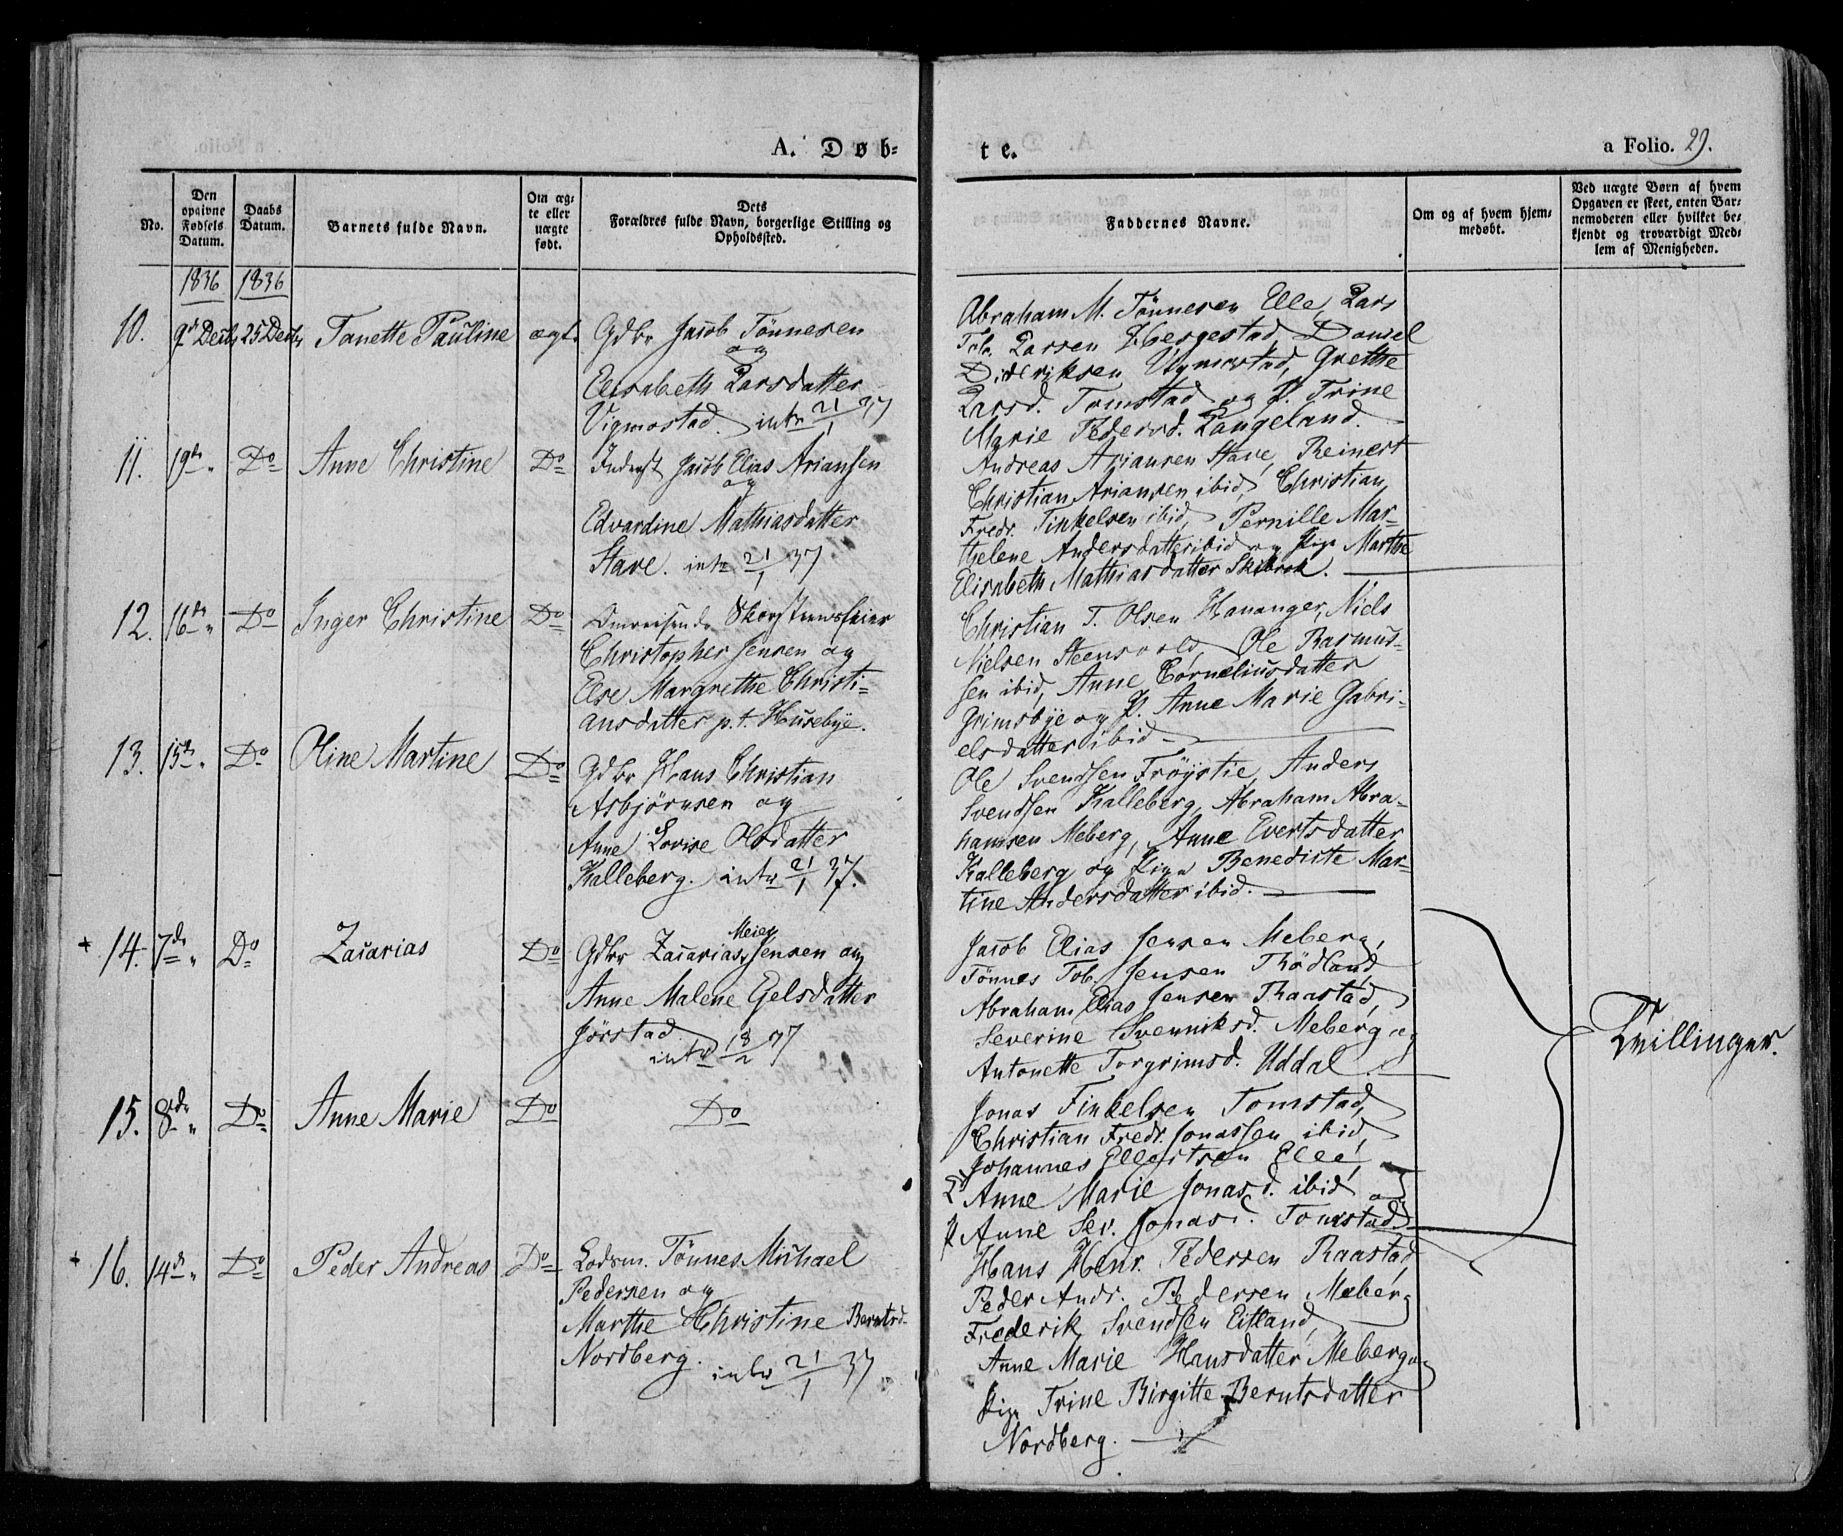 A. Døb-
te.
a Folio. 29.
No.
Den opgivne Fødsels Datum.
Daabs Datum.
Barnets fulde Navn.
Om ægte eller uægte født.
Dets
Forældres fulde Navn, borgerlige Stilling og
Opholdssted.
Faddernes Navne.
Om og af hvem hjemmedøbt.
Ved uægte Børn af hvem
Opgaven er skeet, enten Bar-
nemoderen eller hvilket be-
kjendt og troværdigt Med-
lem af Menigheden.
1836 1836
10. 9de Decbr 25 Decbr Tanette Pauline ægt.
Gdbr Jacob Tönnesen
og
Elisabeth Larsdatter
Vigmostad. intr 21/1 37
Abraham M. Tönnesen Elle, Lars
Larsen Hergestad, Daniel
Dideriksen Vigmostad, Grethe
Larsd. Tomstad og P. Trine
Marie Pedersd. Langeland.
11. 19de " Do Anne Christine Do
Inderst Jacob Elias Ariansen
og
Edvardine Mathiasdatter
Stave. intr 21/1 37
Andreas Ariansen Stave, Reinert
Christian Ariansen ibid, Christian
Fredr. Finkelsen ibid, Pernille Mar-
thelene Andersdatter ibid og Pige Marthe
Elisabeth Mathiasdatter Skibrok.
12. 16de " Do Inger Christine Do
Omreisende Skorsteensfeier
Christopher Jensen og
Else Margrethe Christi-
ansdatter p.t. Husebye.
Christian T. Olsen Hananger, Niels
Nielsen Steensvold, Ole Rasmus-
sen ibid, Anne Corneliusdatter
Grimsbye og P. Anne Marie Gabri-
elsdatter ibid
13. 15de " Do Oline Martine Do
Gdbr Hans Christian
Asbjörnsen og
Anne Lovise Olsdatter
Kalleberg. intr 21/1 37.
Ole Svendsen Fröystie, Anders
Svendsen Kalleberg, Abraham Abra-
hamsen Meberg, Anne Evertsdatter
Kalleberg og Pige Benedicte Mar-
tine Andersdatter ibid.
+ 14. 7de " Do Zacarias Do
Meier
Gdbr Zacarias Jensen og
Anne Malene Eyelsdatter
Jörstad
intr 18/2 37
Jacob Elias Jensen Meberg,
Tönnes Tob. Jensen Thödland
Abraham Elias Jensen Raastad,
Severine Svenniksd. Meberg og
Antonette Torgrimsd. Uddal
Tvillinger.
15. 8de " Do Anne Marie Do
Do
Jonas Finkelsen Tomstad,
Christian Fredr. Jonassen ibid,
Johannes Ellertsen Elle,
Anne Marie Jonasd. ibid og
P. Anne Sev. Jonasd. Tomstad
+ 16. 14de " Do Peder Andreas Do
Lodsm. Tönnes Michael
Pedersen og
Marthe Christine Berntsd.
Nordberg.
intr 21/1 37
Hans Henr. Pedersen Raastad,
Peder Andr. Pedersen Meberg
Frederik Svendsen Eitland,
Anne Marie Hansdatter Meberg og
Pige Trine Birgitte Berntsdatter
Nordberg.